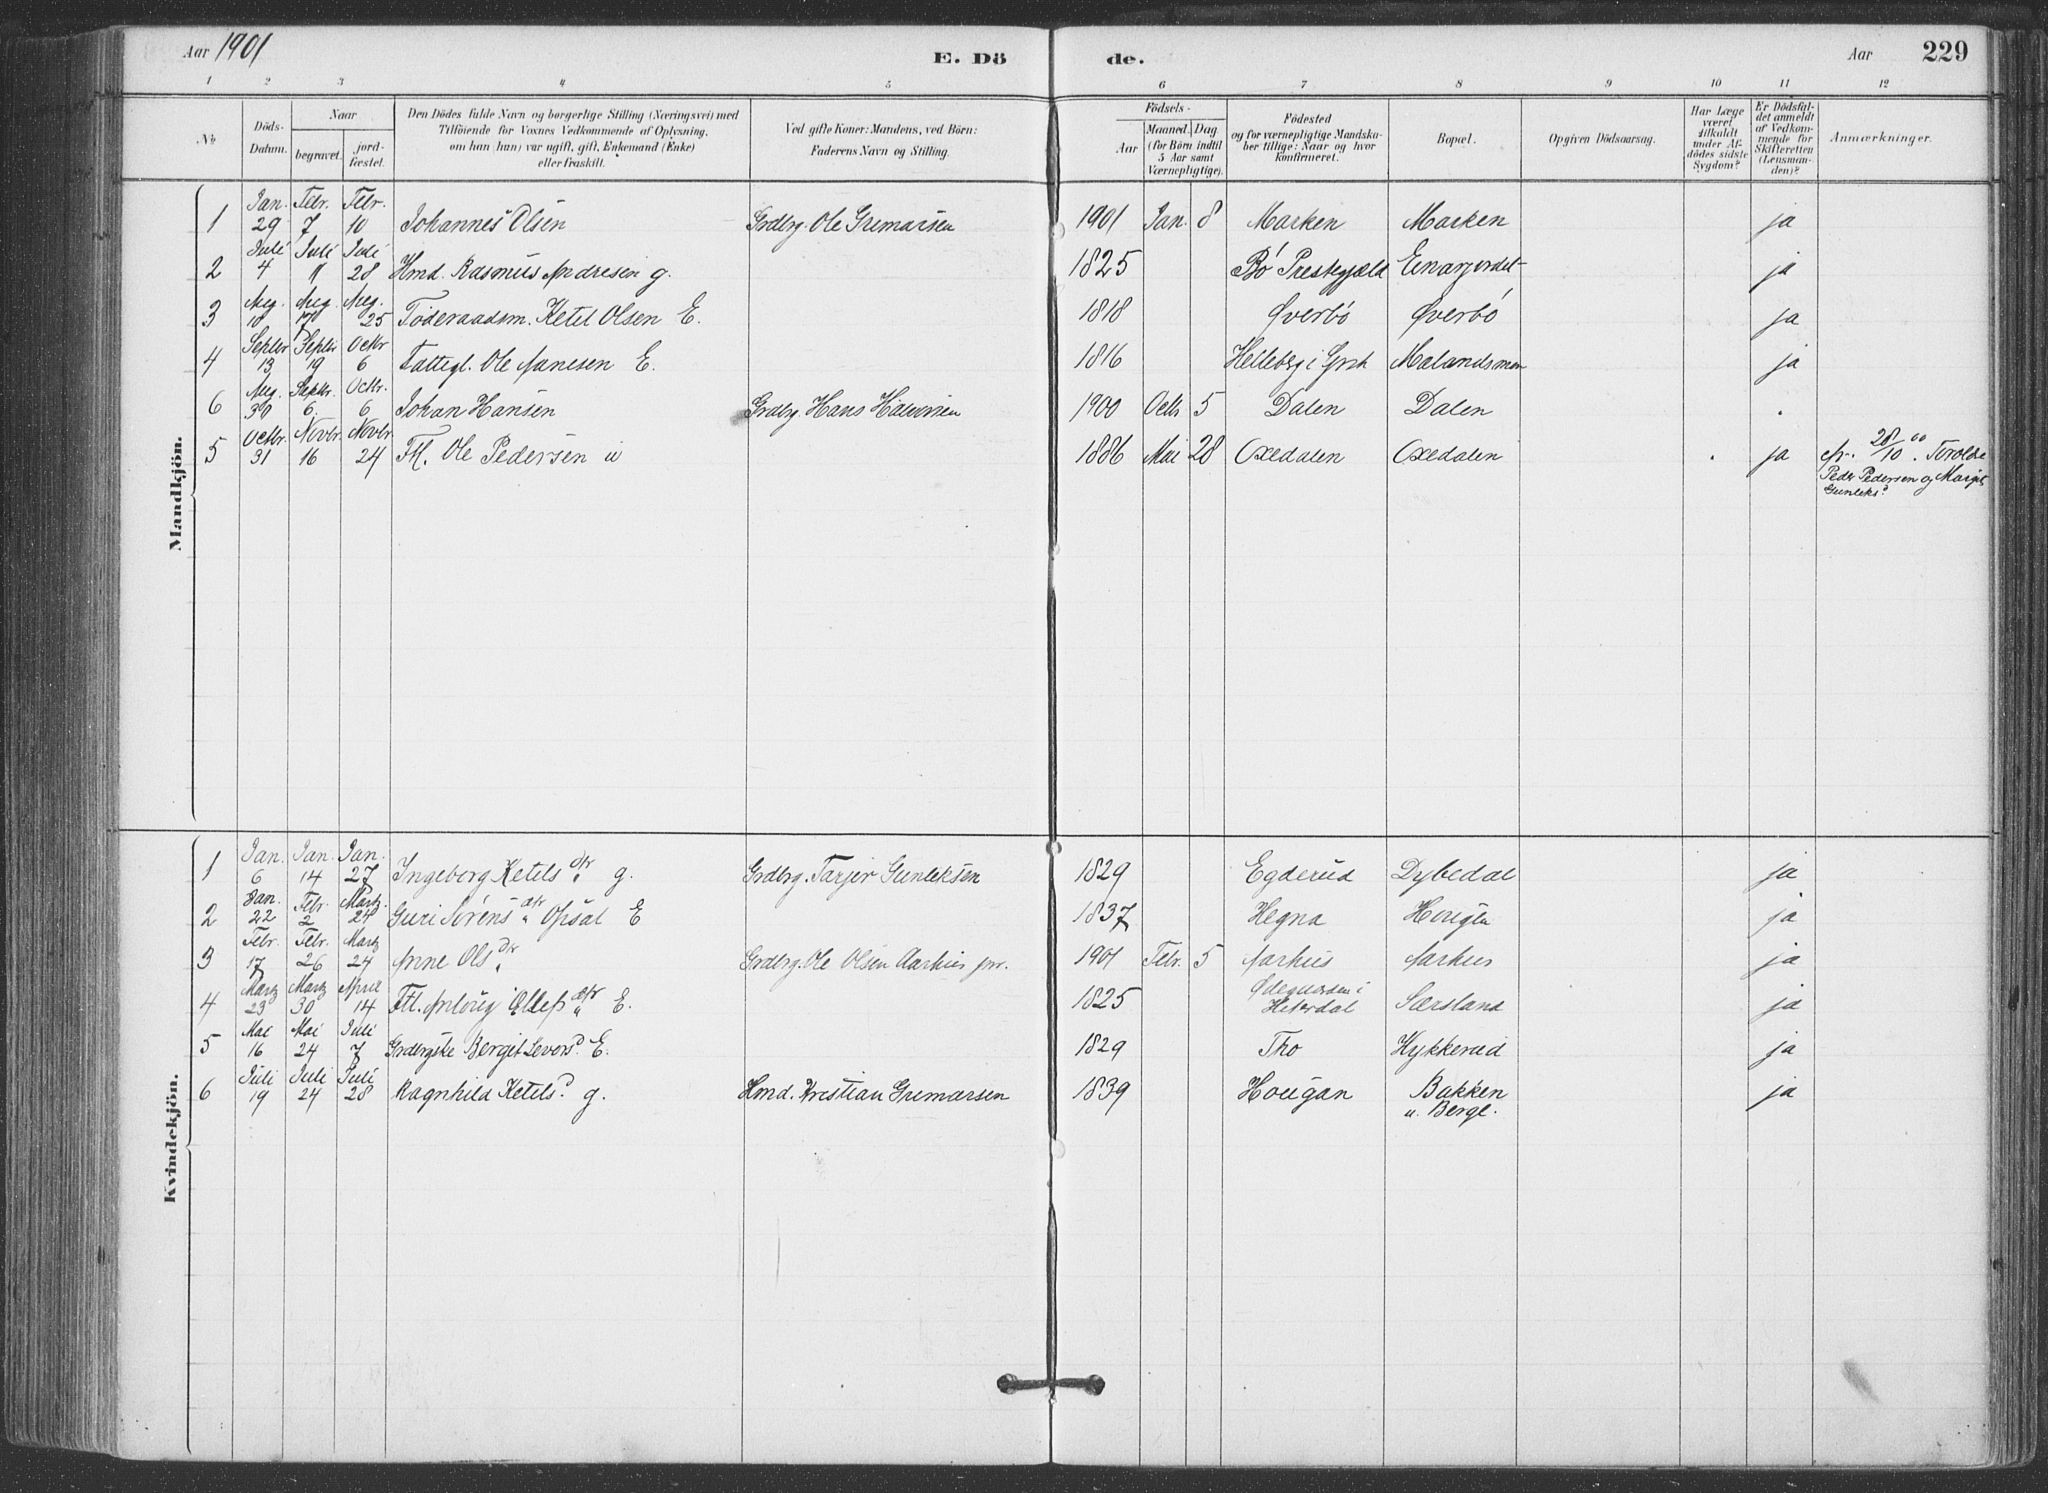 Aar 1901
E. Dö
de.
Aar
229
1 2 3 4 5 6 7 8 9 10 11 12
No
Döds-
Datum.
Naar
begravet.
jord-
fæstet.
Den Dödes fulde Navn og borgerlige Stilling (Næringsvei) med
Tilföiende for Voxnes Vedkommende af Oplysning,
om han (hun) var ugift, gift, Enkemand (Enke)
eller fraskilt.
Ved gifte Koner: Mandens, ved Börn:
Faderens Navn og Stilling.
Födsels-
Aar
Maaned. Dag
(for Börn indtil
5 Aar samt
Værnepligtige).
Födested
og for værnepligtige Mandska-
ber tillige: Naar og hvor
konfirmeret.
Bopæl.
Opgiven Dödsaarsag.
Har Læge
været
tilkaldt
under Af-
dödes sidste
Sygdom?
Er Dödsfal-
det anmeldt
af Vedkom-
mende for
Skifteretten
(Lensman-
den)?
Anmærkninger.
Mandkjön.
1 Jan. 29 Febr. 7 Febr. 10 Johannes Olsen Grdbrg. Ole Gremarsen 1901 Jan. 8 Marken Marken ja
2 Juli 4 Juli 11 Juli 28 Hmd. Rasmus Andresen g. 1825 Bó Prestegjæld Einarjordet ja
3 Aug. 10 Aug. 17 Aug. 25 Föderaadsm. Ketil Olsen E. 1818 Øverbó Øverbó ja
4 Septbr 13 Septbr 19 Octbr 6 Fattigl. Ole Aanesen E. 1816 Helleberg i Grsh Malandsmoen ja
6 Aug. 30 Septbr. 6. Octbr. 6 Johan Hansen Grdbrg. Hans Halvorsen 1900 Octb 5 Dalen Dalen
5 Octbr. 31 Novbr. 16 Novbr. 24 Fl. Ole Pedersen u 1886 Mai 28 Oxedalen Oxedalen ja 28/10 00. Forældre
Peder Pedersen og Margit
Gunleksd.
Kvindekjön.
1 Jan. 6 Jan. 14 Jan. 27 Ingeborg Ketilsdtr g. Grdbrg. Tarjer Gunleksen 1829 Egderud Dybedal ja
2 Jan. 22 Febr. 2 Martz 24 Guri Sørensdtr Opsal E 1837 Hegna Hougen ja
3 Febr. 17 Febr. 26 Martz 24 Anne Olsdtr Grdbrg. Ole Olsen Aarhus jnr. 1901 Febr. 5 Aarhus Aarhus ja
4 Martz 23 Martz 30 April 14 Ftl. dtr E. 1825 i
Hiterdal Særsland ja
5 Mai 16 Mai 24 Juli 7 Bergit E. 1829 Tho Hykkerud ja
6 Juli 19 Juli 24 Juli 28 Ragnhild Ketilsd. g. Hmd. Kristian Gremarsen 1839 Hougan Bakken
u. Berge. ja